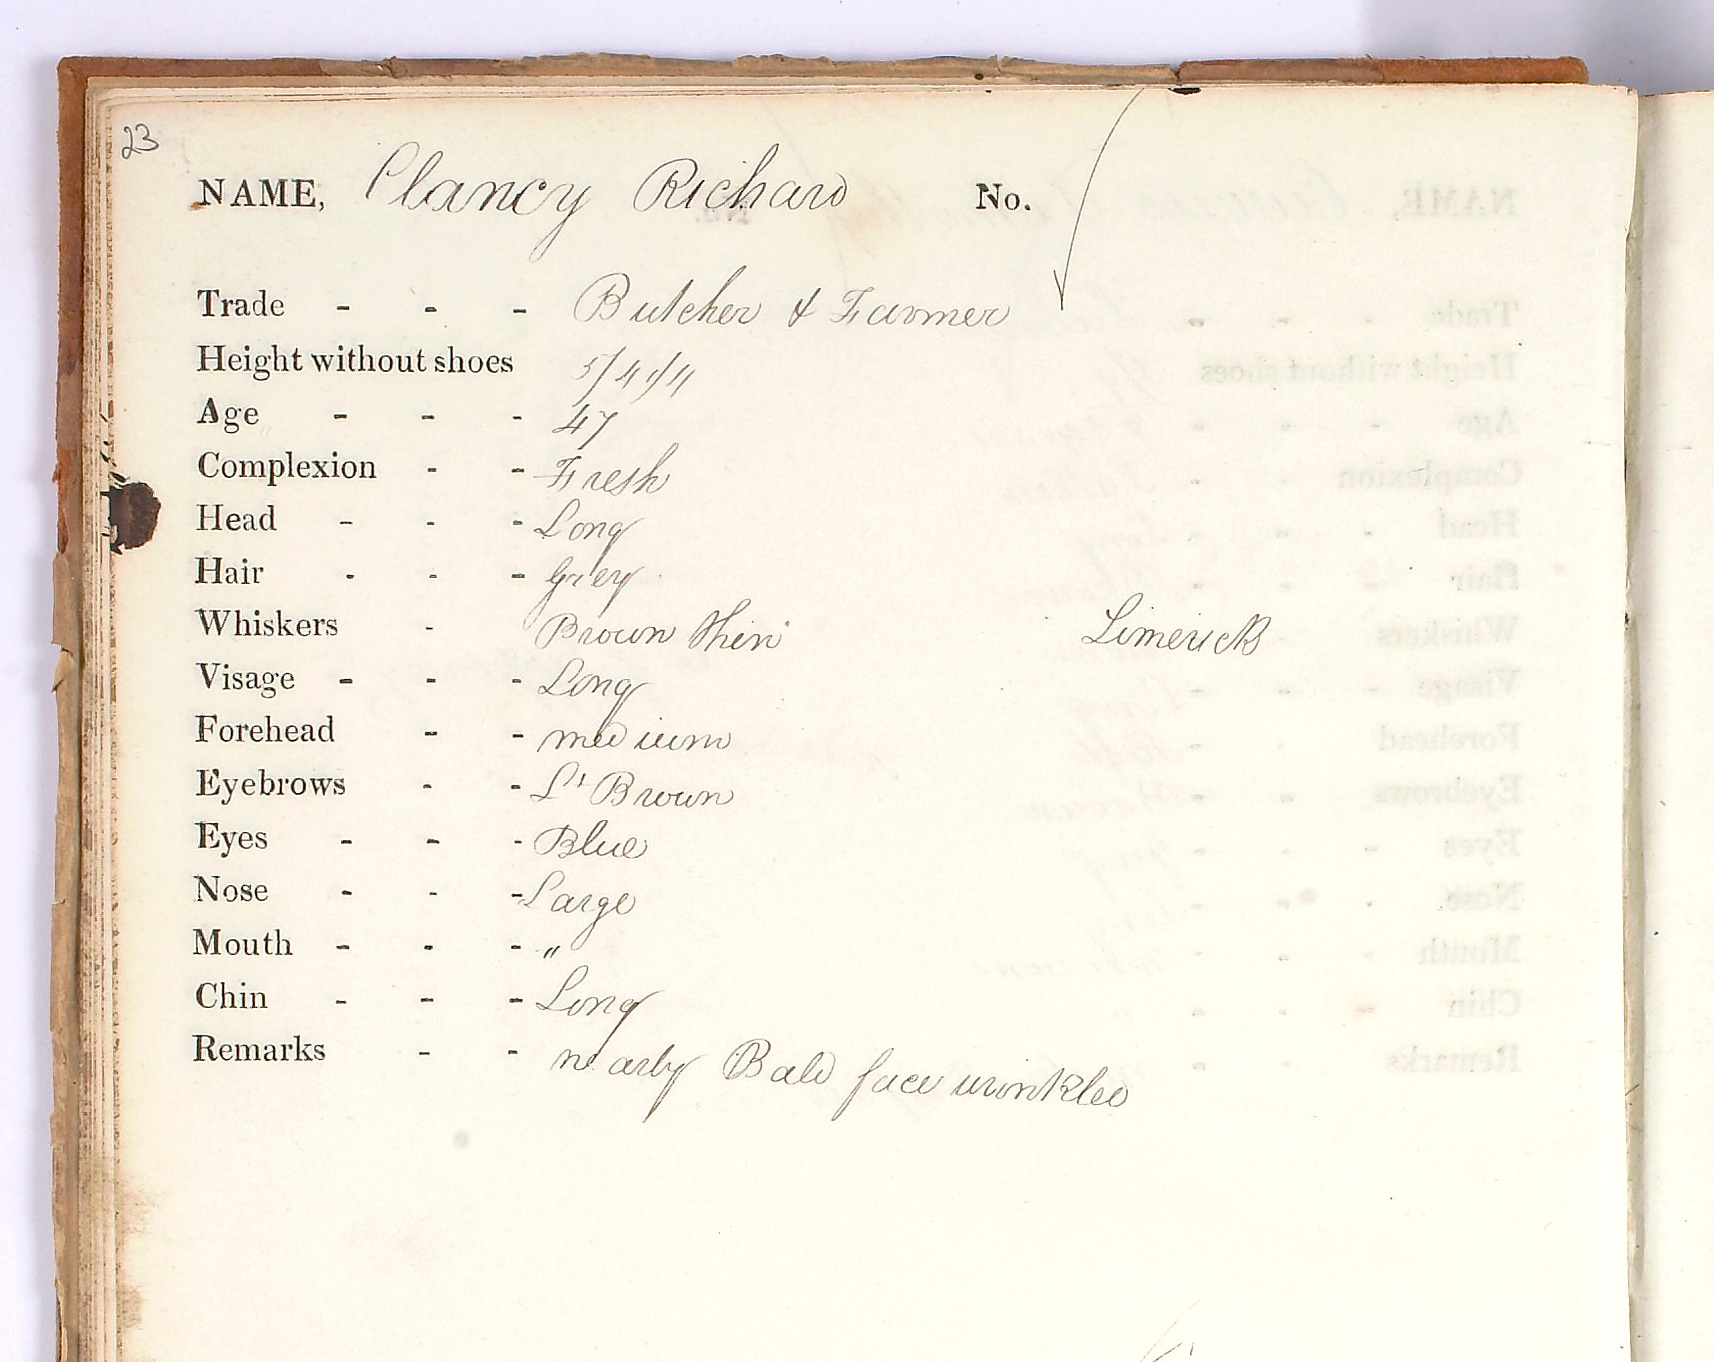 23
NAME, Clancy Richard No.
Trade - - - Butcher & Farmer
Height without shoes 5/4 1/4
Age - - - 47
Complexion - - Fresh
Head - - - Long
Hair - - - Grey
Whiskers - Brown thin Limerick
Visage - - - Long
Forehead - - medium
Eyebrows - - Lt Brown
Eyes - - - Blue
Nose - - - Large
Mouth - - - "
Chin - - - Long
Remarks - - nearly Bald face wrinkled